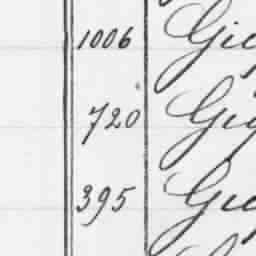 1006 Gie
720 Gig
395 Gi